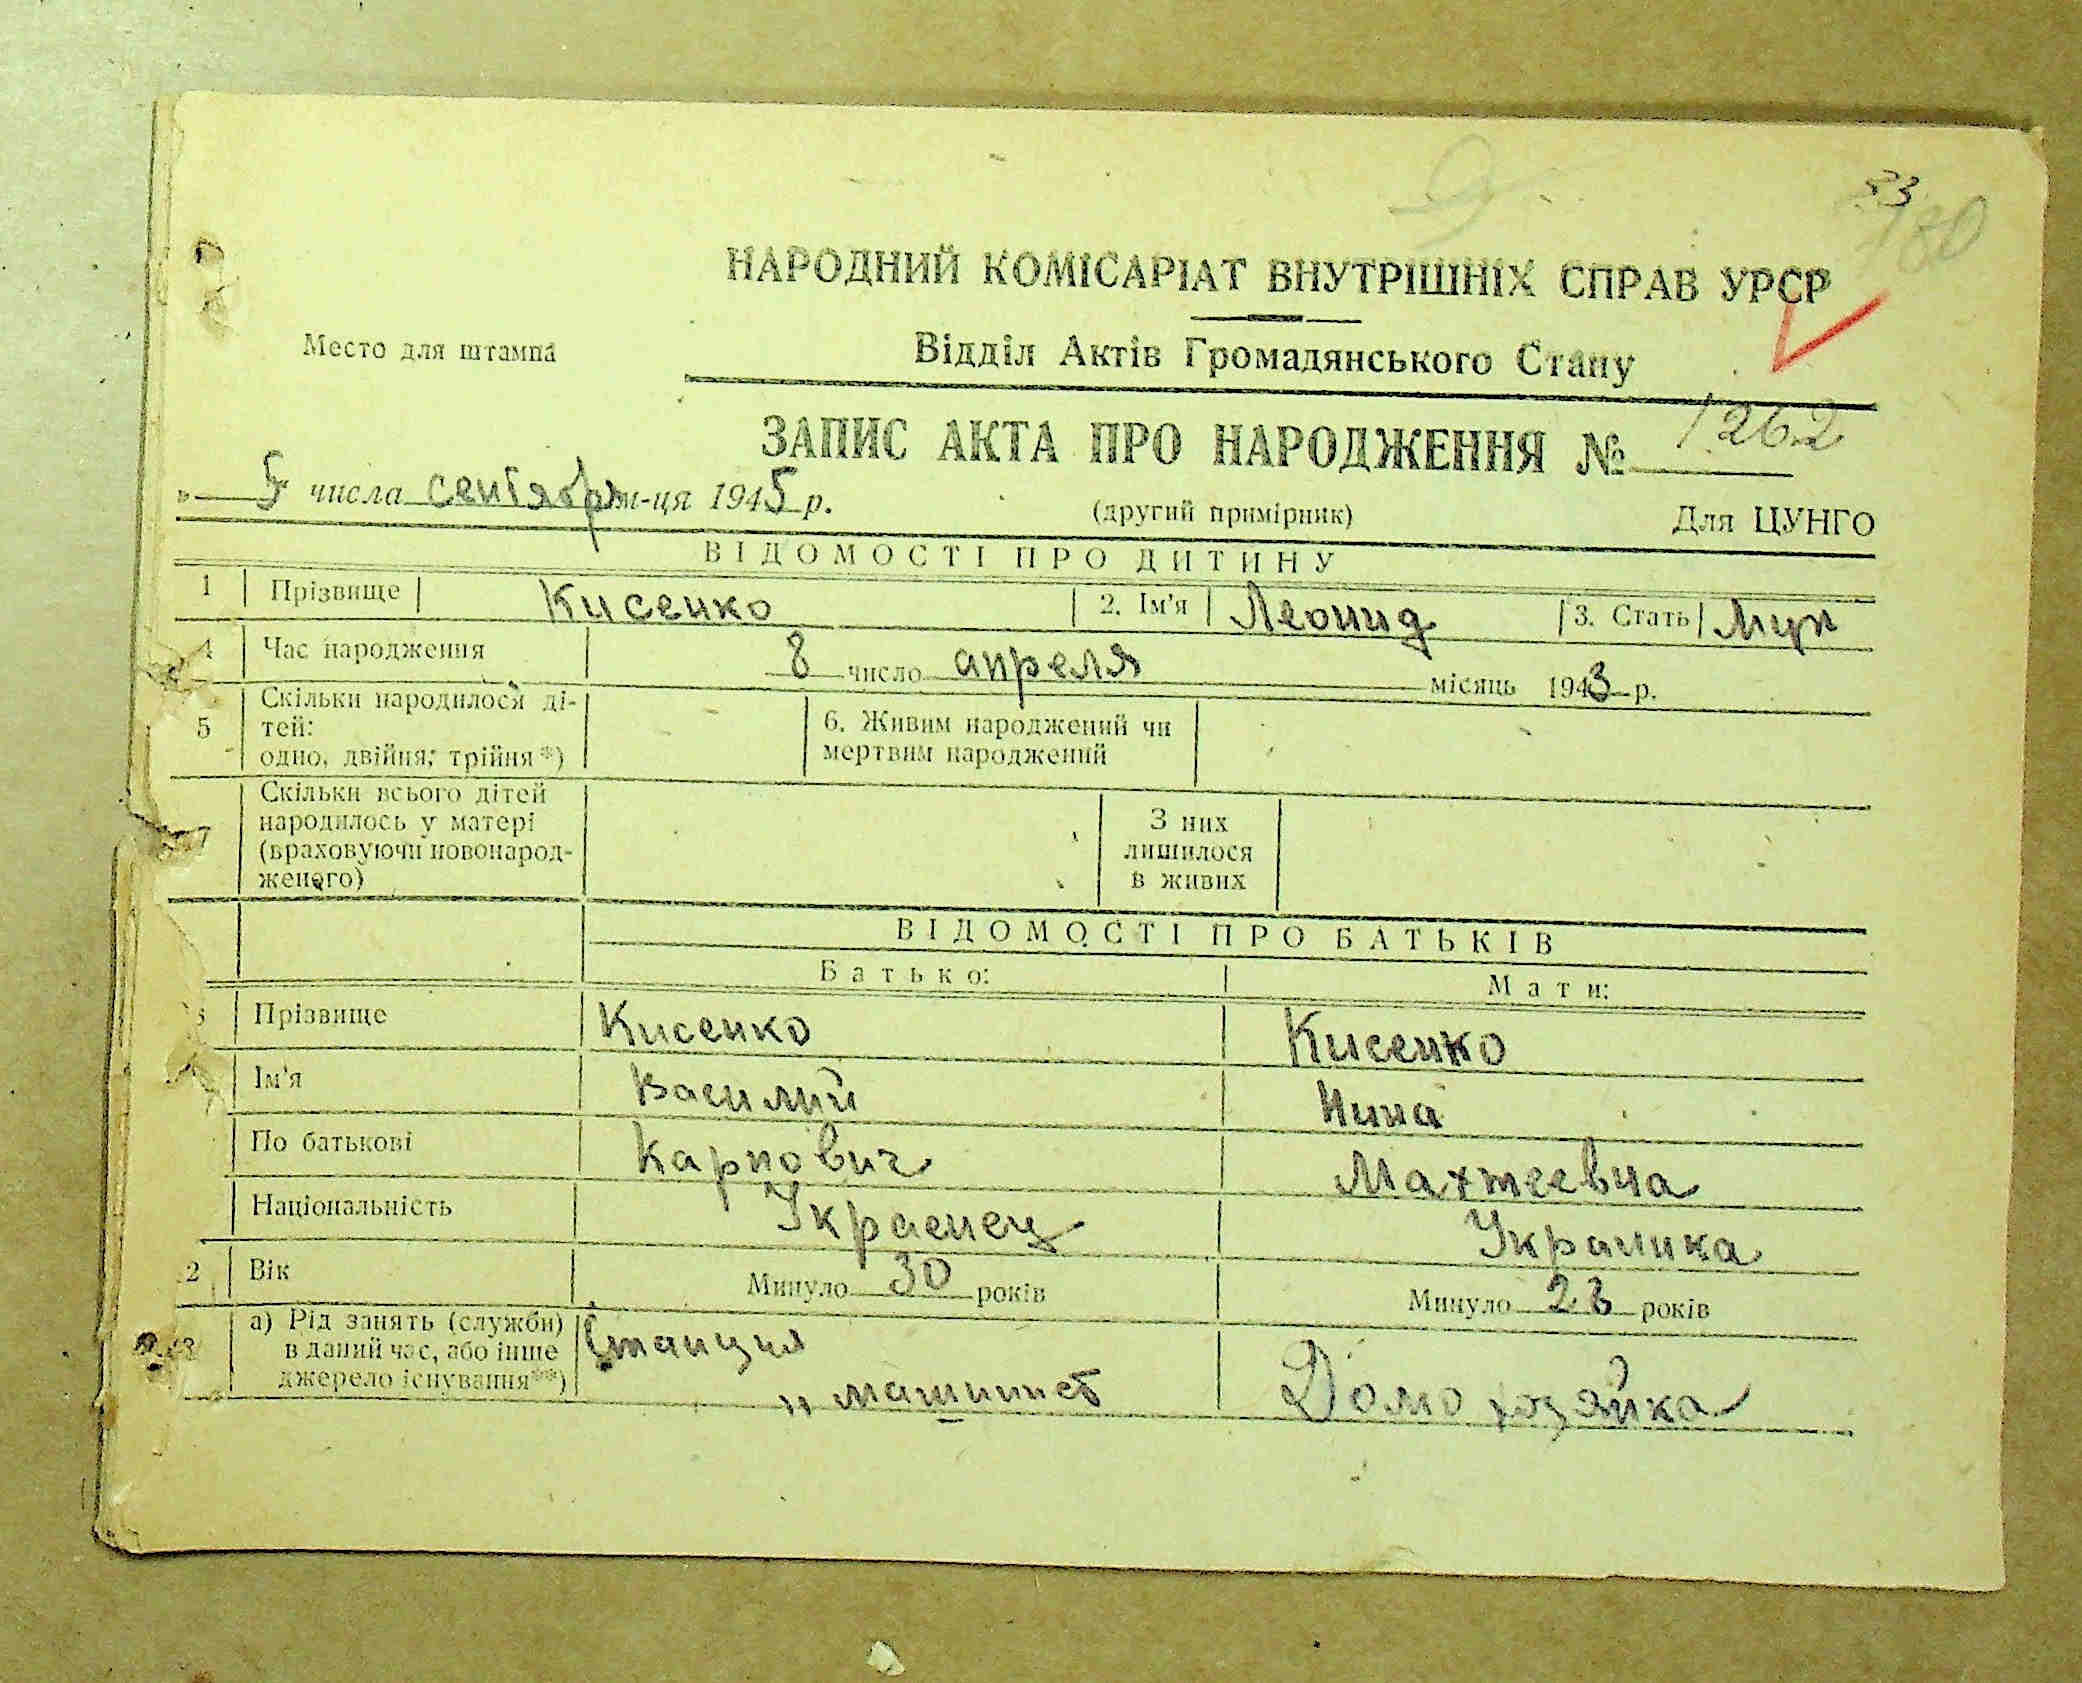 33
180
НАРОДНИЙ КОМІСАРІАТ ВНУТРІШНІХ СПРАВ УРСР
Место для штампа
Відділ Актів Громадянського Стану
ЗАПИС АКТА ПРО НАРОДЖЕННЯ № 1262
„ 5 числа сентября м-ця 1945 р.
(другий примірник)
Для ЦУНГО
ВІДОМОСТІ ПРО ДИТИНУ
1 Прізвище Кисенко 2. Ім'я Леонид 3. Стать Муж
4 Час народження 8 число апреля місяць 1943 р.
5 Скільки народилося ді-
тей:
одно, двійня, трійня*)
6. Живим народжений чи
мертвим народжений
7 Скільки всього дітей
народилось у матері
(враховуючи новонарод-
женого)
З них
лишилося
в живих
ВІДОМОСТІ ПРО БАТЬКІВ
Батько: Мати:
Прізвище Кисенко Кисенко
Ім'я Василий Нина
По батькові Карпович Махтеевна
Національність Украенец Украинка
2 Вік Минуло 30 років Минуло 28 років
а) Рід занять (служби)
в даний час, або інше
джерело існування**)
Станция
машинист
Домохозяйка